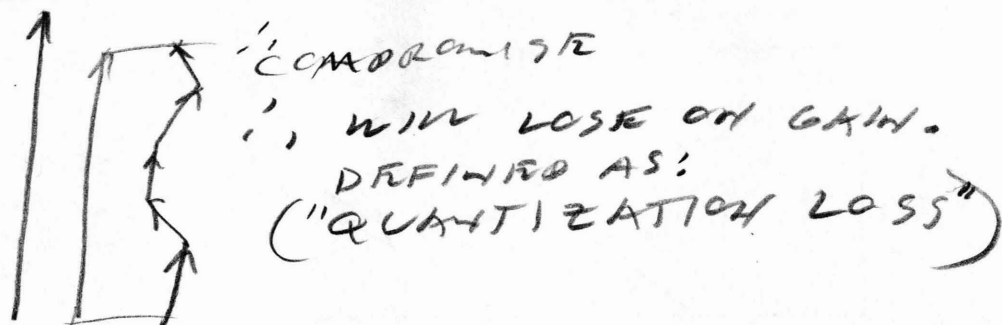 "COMPROMISE
∴ WILL LOSE ON GAIN.
DEFINED AS:
("QUANTIZATION LOSS")